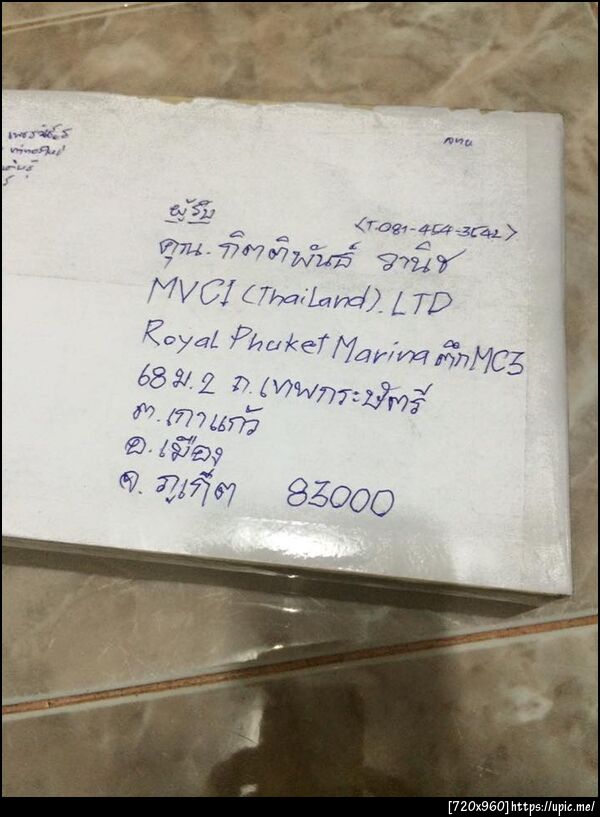 ผู้รับ
<T.081-454-3542>
คุณ.กิตติพันธ์ วานิช
MVCI (Thailand). LTD
Royal Phuket Marina ตึก MC3
68 ม.2 ถ.เทพกระษัตรี
ต.เกาแก้ว
อ.เมือง
จ.ภูเก็ต 83000
[720x960] https://upic.me/